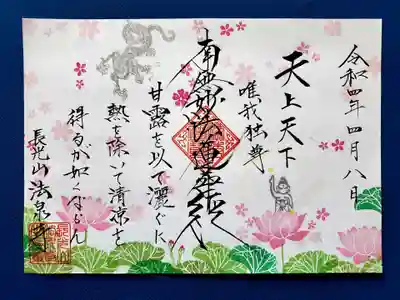 令和四年四月八日
天上天下
唯我独尊
南無妙法蓮華経
甘露を以て灑ぐに
熱を除いて清涼を
得るが如くならん
長光山 法泉寺